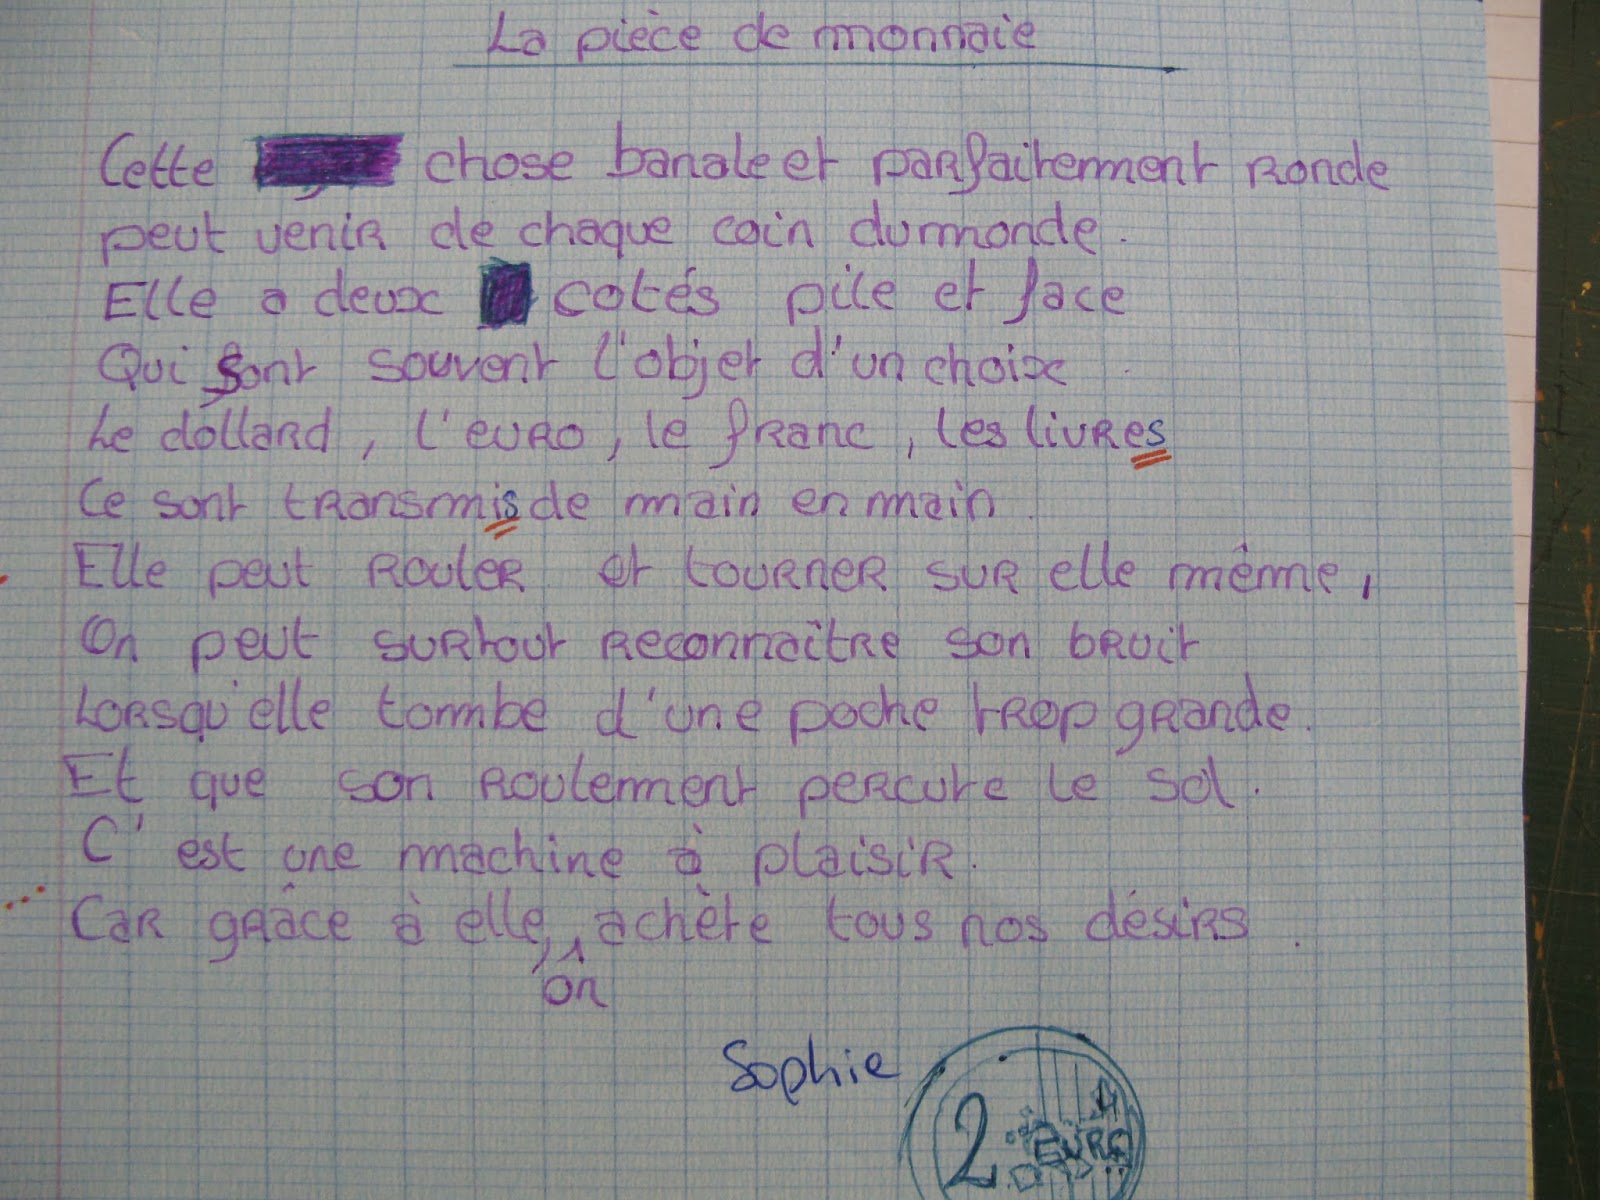 La pièce de monnaie
Cette chose banale et parfaitement ronde
peut venir de chaque coin du monde.
Elle a deux cotés pile et face
Qui sont souvent l'objet d'un choix
Le dollard, l'euro, le franc, les livres
Ce sont transmis de main en main.
Elle peut rouler et tourner sur elle même,
On peut surtout reconnaître son bruit
Lorsqu'elle tombe d'une poche trop grande.
Et que son roulement percute le sol.
C'est une machine à plaisir.
Car grâce à elle, on achète tous nos désirs.
Sophie
2 EURO